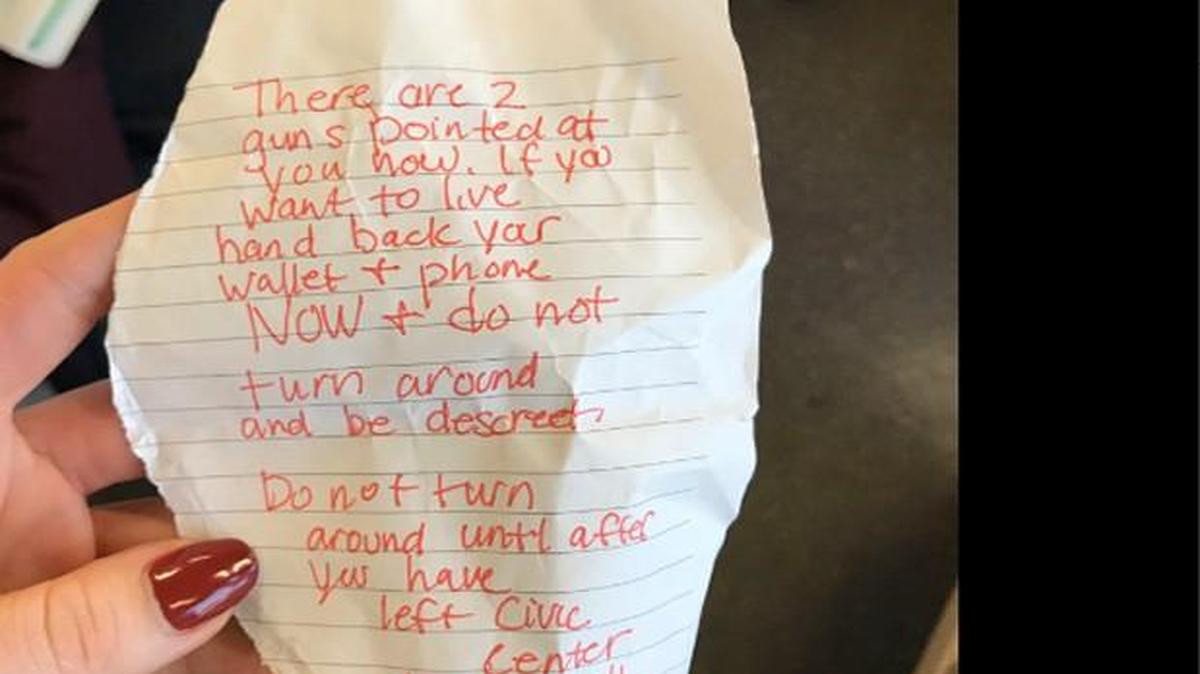 There are 2
guns pointed at
you now. If you
want to live
hand back your
wallet + phone
NOW + do not
turn around
and be descreet
Do not turn
around until after
you have
left Civic
Center